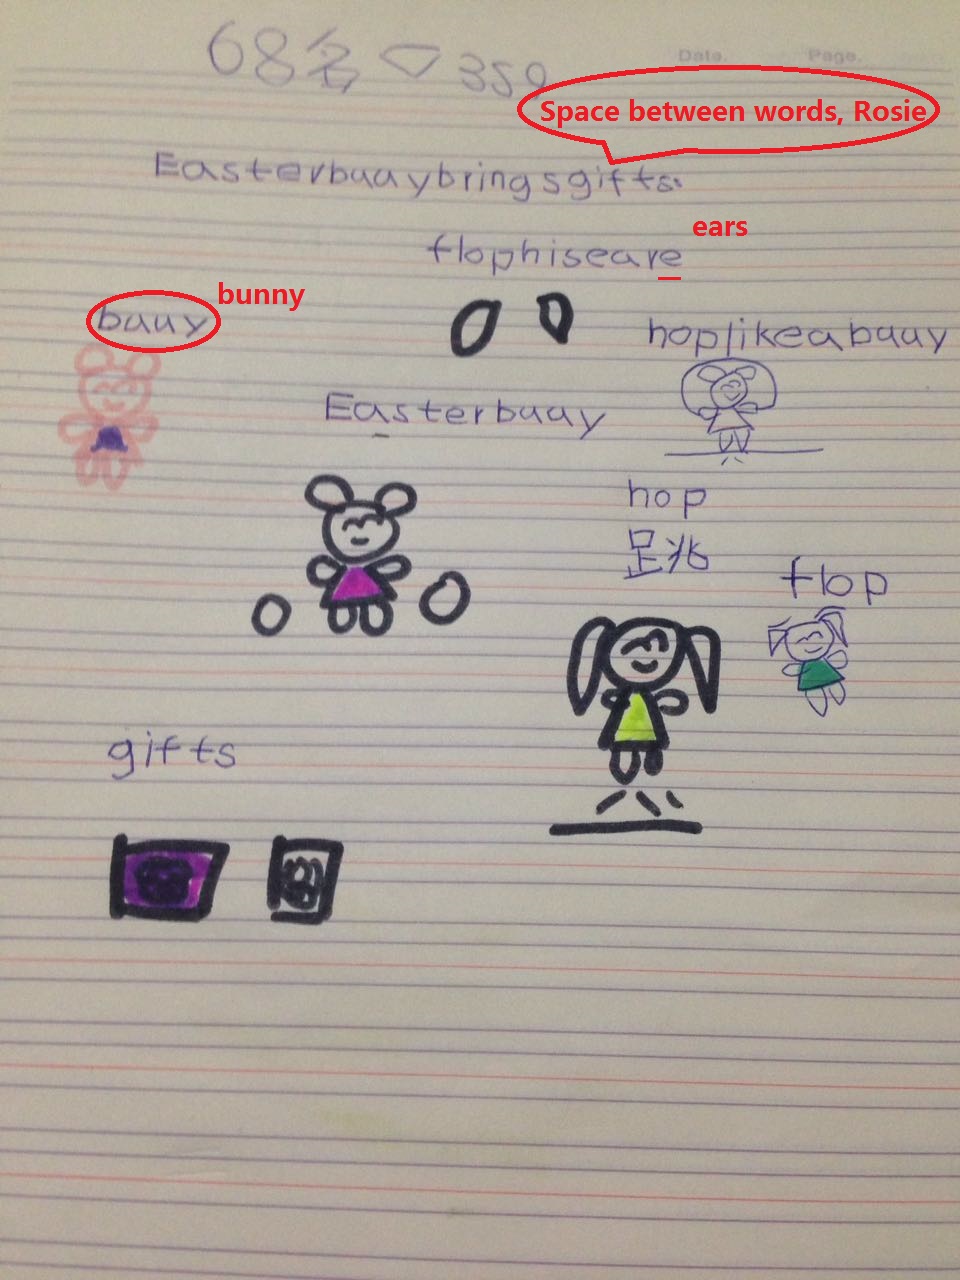 68名 359
Date. Page.
Space between words, Rosie
Easterbuuybringsgifts.
ears
flophiseare
bunny
buuy
hoplikeabuuy
Easterbuuy
hop
跳
flop
gifts